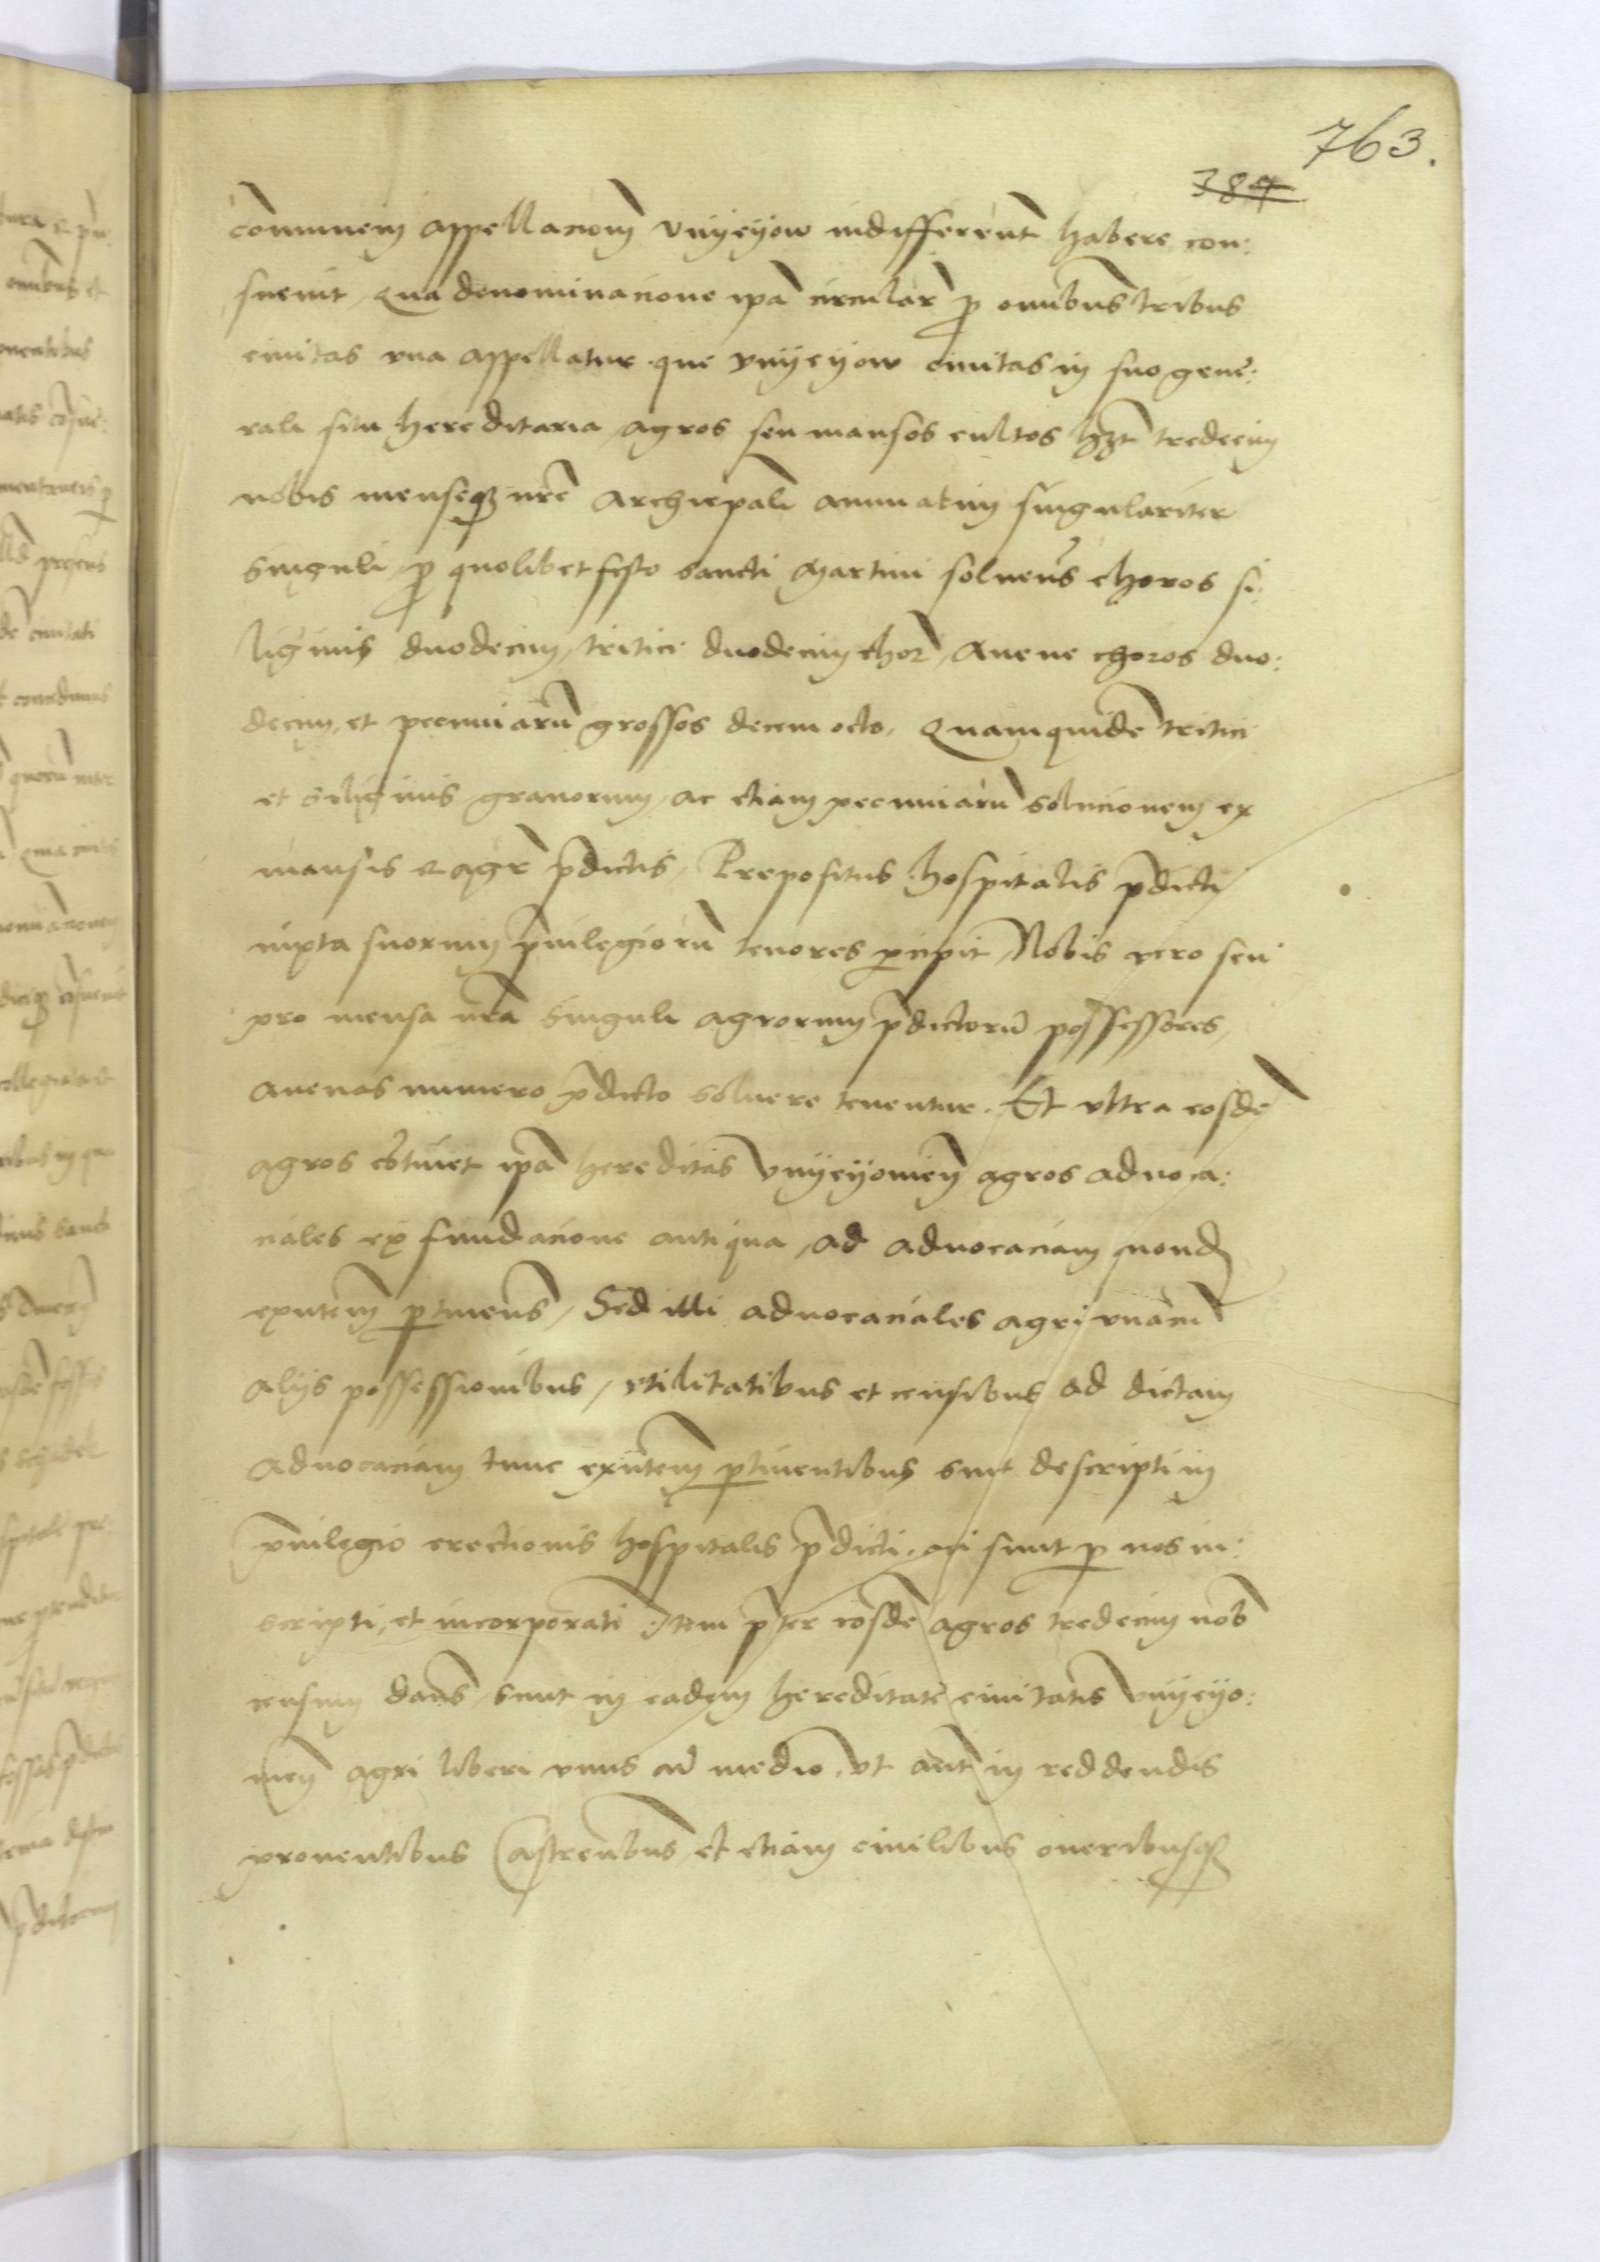 763.
384
communem appellacionem Vnyeyow indifferent habere con:
sueuit, Qua denominacione ipa circular p omibus tribus
ciuitas vna appellatur que vnyeyow ciuitas in suo gene:
rali situ hereditaria agros seu mansos cultos hzt tredecim
nobis menseq nre Archiepali annuatim singulariter
singuli p quolibet festo sancti Martini soluens choros si:
liginis duodecim, tritici duodecim chor, Auene choros duo:
decim, et pecuniaru grossos decem octo, Quamquide tritici
et siliginis granorum, ac etiam pecuniaru solucionem ex
mansis et agr pdictis, Prepositus hospitalis pdicti
iuxta suorum priuilegioru tenores percipit, Nobis vero seu
pro mensa nra singuli agrorum pdictoru possessores,
auenas numero pdicto soluere tenentur. Et vltra eosde
agros cotinet ipa hereditas Vnyeyowien agros aduoca:
ciales ex fundacione antiqua, ad aduocaciam quond
exntem ptinens, Sed illi aduocaciales agri vnacu
alijs possessionibus, vtilitatibus et censibus ad dictam
aduocaciam tunc exntem ptinentibus sunt descripti in
priuilegio erectionis hospitalis pdicti, cui sunt p nos in:
scripti, et incorporati Item pter eosde agros tredecim nob
censum dans, sunt in eadem hereditate ciuitatis Vnyeyo:
wien agri liberi vnus cu medio, vt aut in reddendis
prouentibus Castrensibus, et etiam ciuilibus oneribusq